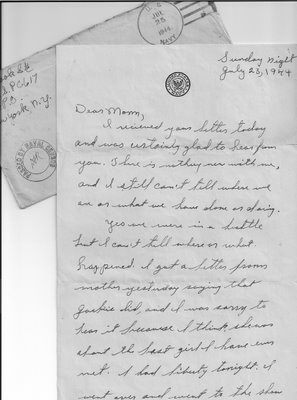 U.S.
JUL
25
1944
NAVY
PC 617
N.Y.
PASSED BY NAVAL CENSOR
Sunday Night
July 23, 1944
Dear Mom,
I recieved your letter today
and was certainly glad to hear from
you. There is nothing new with me,
and I still can't tell where we
are or what we have done or doing.
Yes we were in a battle
but I can't tell where or what
happened. I got a letter from
mother yesterday saying that
did, and I was sorry to
hear it because I think she was
about the best girl I have ever
met. I had liberty tonight. I
went over and went to the show